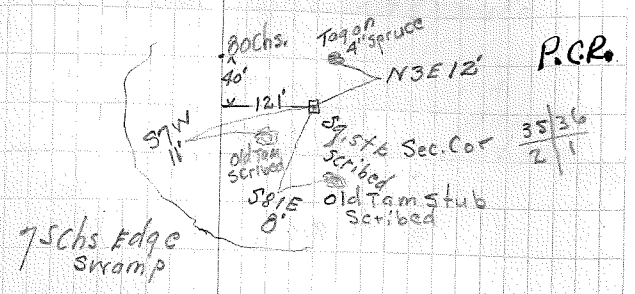 80Chs.
40'
121'
Tag on
4" spruce
N3E 12'
P.C.R.
S7W
11'
Old Tam
Scribed
Sq. stk Sec. Cor
Scribed
35 36
2 1
S81E
8'
Old Tam Stub
Scribed
75chs Edge
Swamp